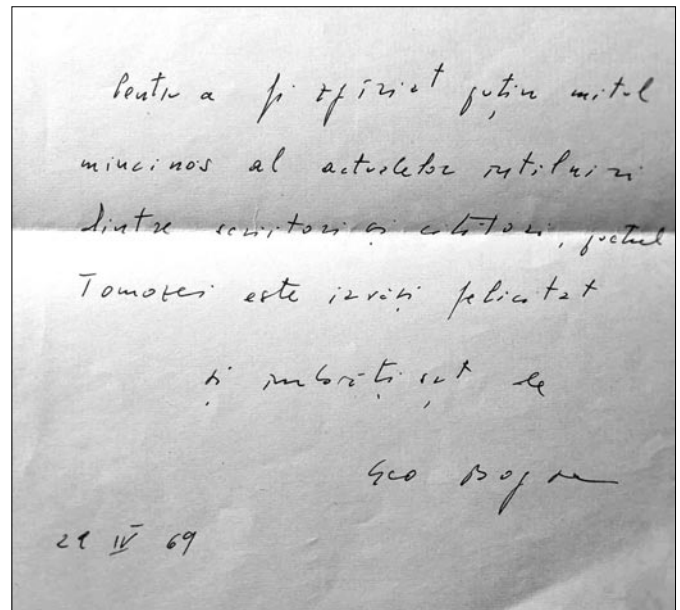 Pentru a fi zgîriat puțin mitul
mincinos al actualelor întîlniri
dintre scriitori și cititori, poetul
Tomozei este iarăși felicitat
și îmbrățișat de
Geo Bogza
29 IV 69